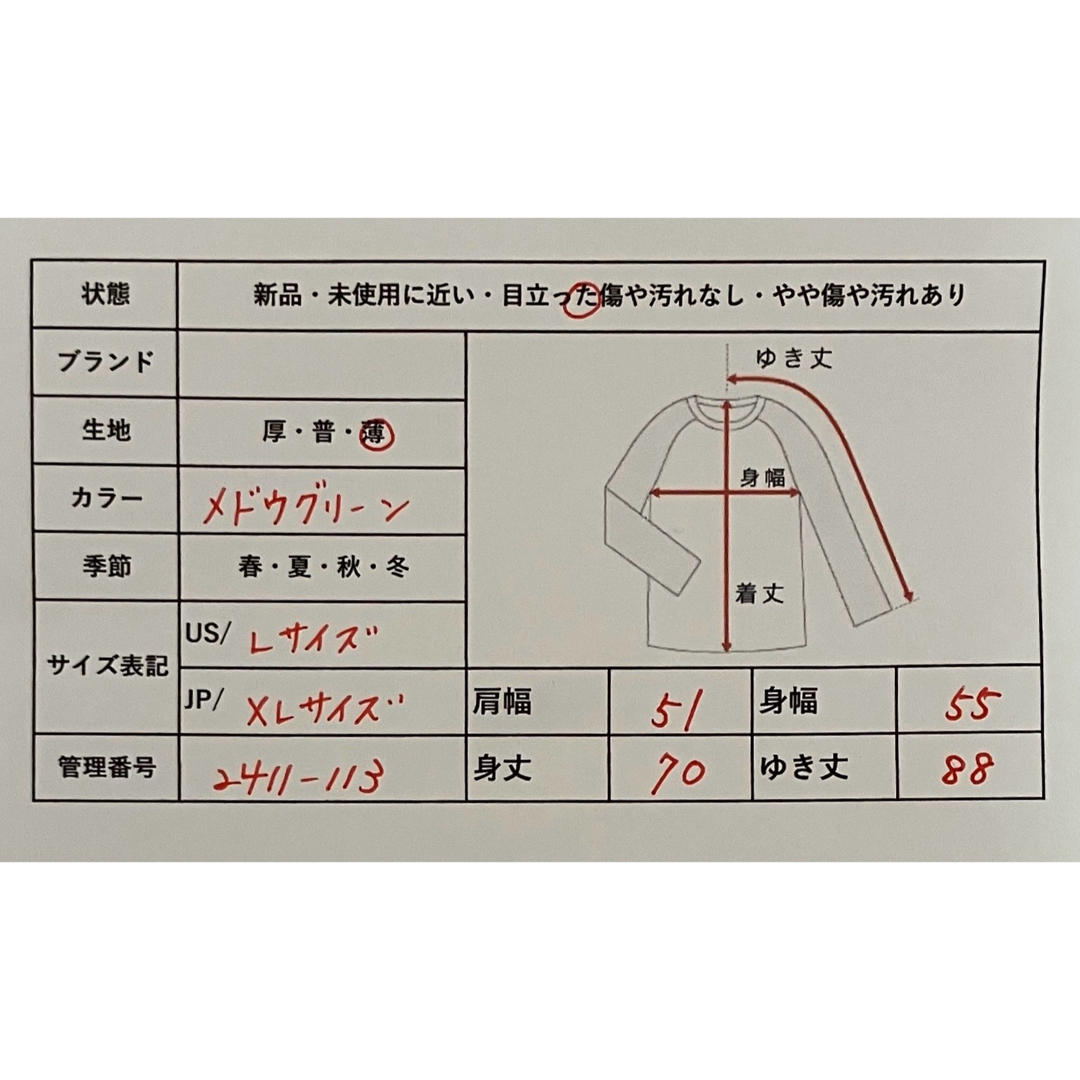 状態 新品・未使用に近い・目立った傷や汚れなし・やや傷や汚れあり
ブランド
ゆき丈
生地 厚・普・薄
カラー メドウグリーン
身幅
季節 春・夏・秋・冬
着丈
サイズ表記
US/ Lサイズ
JP/ XLサイズ 肩幅 51 身幅 55
管理番号 2411-113 身丈 70 ゆき丈 88